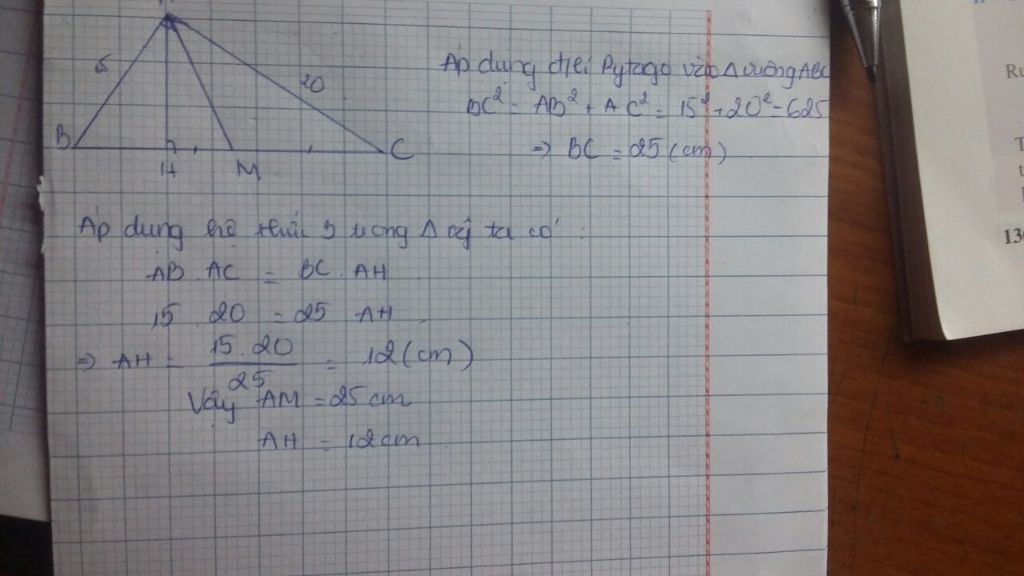 15
20
B
H
M
C
Áp dụng đlí Pytago vào Δ vuông ABC
BC² = AB² + AC² = 15² + 20² = 625
⇒ BC = 25 (cm)
Áp dụng hệ thức 3 trong Δ ta có :
AB . AC = BC . AH
15 . 20 = 25 . AH
⇒ AH = 15.20 / 25 = 12 (cm)
Vậy AM = 25 cm
AH = 12 cm
Ru
T
t
13